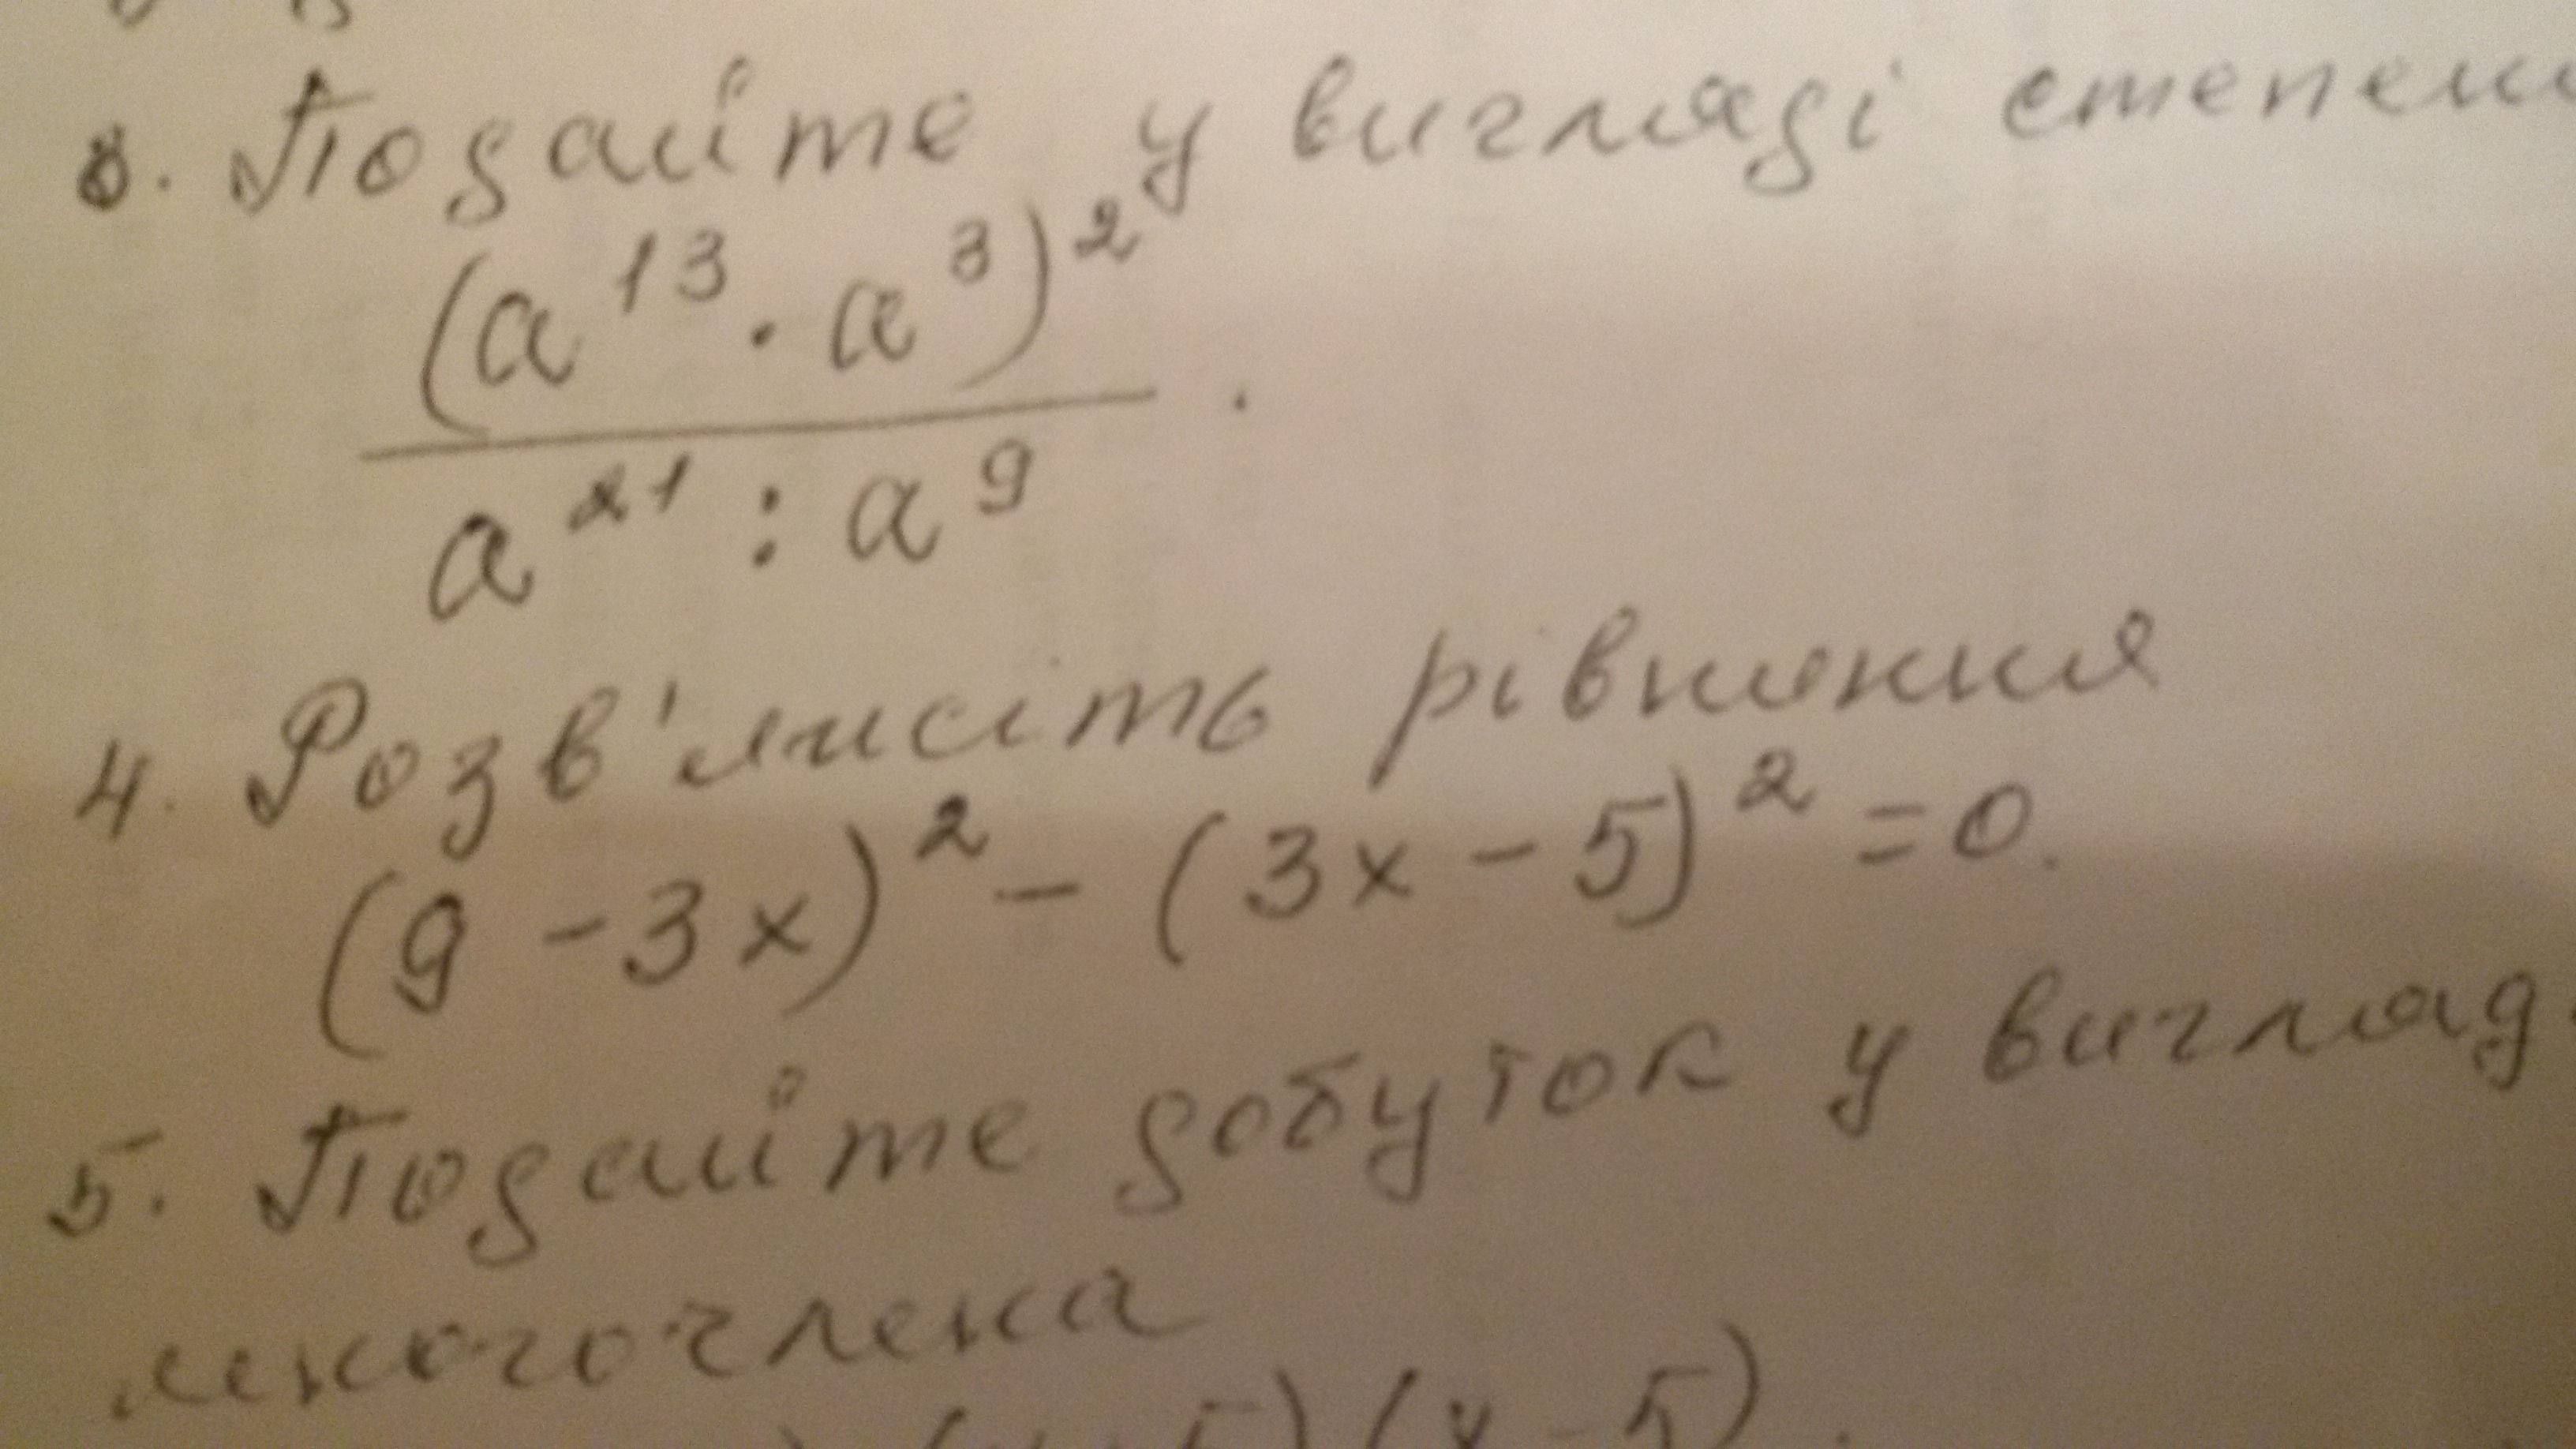 3. Подайте у вигляді степеня
(a¹³ · a³)²
a²¹ : a⁹ .
4. Розв'яжіть рівняння
(9 - 3x)² - (3x - 5)² = 0.
5. Подайте добуток у вигляд
многочлена
(x - 5)